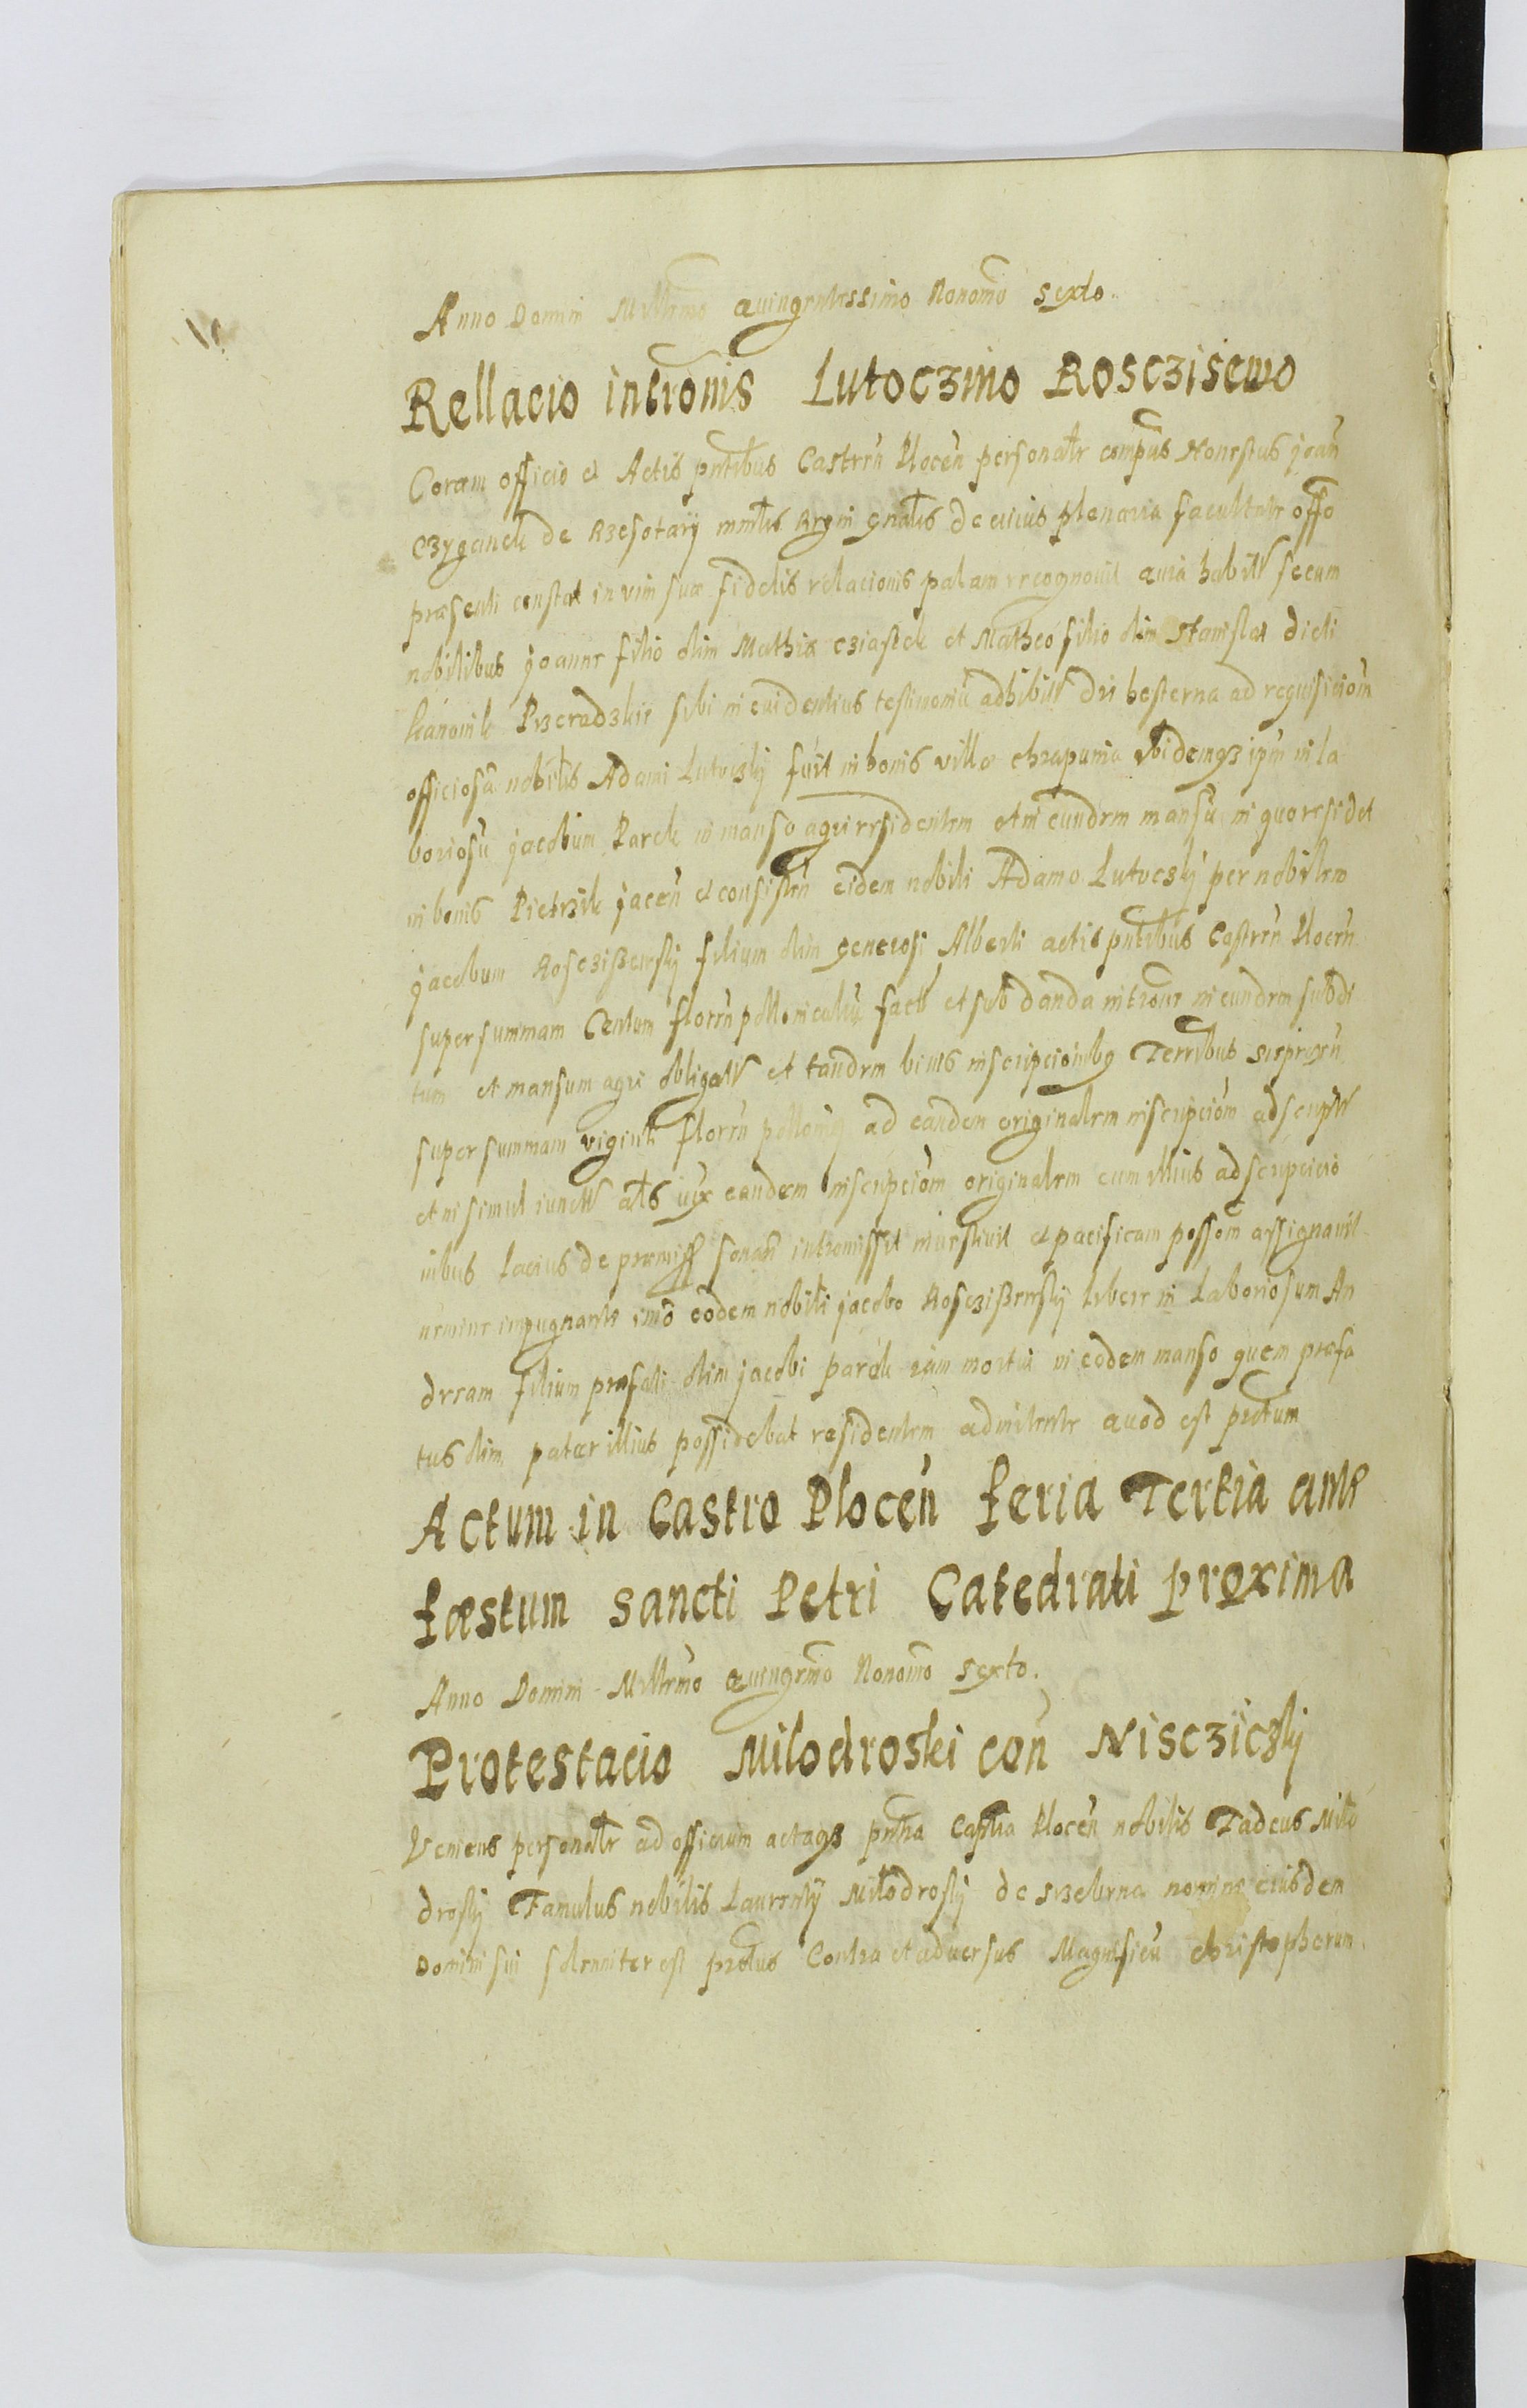 Anno Domini Millesimo Quingentessimo Nonomo sexto.
Rellacio intromis Lutoczino Rosczisewo
Coram officio et Actis pntibus Castren Plocen personalr compns Honestus joan
Czyganek de Rzesotarÿ mintlis Regni gnalis de cuius plenaria facultate offo
præsenti constat in vim suæ fidelis relacionis palam recognovit quia habitt secum
nobilibus joanne filio olim Mathiæ Cziastek et Matheo filio olim Stanislai dicti
Kanonik Przeradzkie sibi in evidentius testimoniu adhibitt die hesterna ad requisiciom
officiosa nobilis Adami Lutocsky fuit in bonis villæ Chrapunia ibidemqz ipm in la
boriosu jacobum Parek in manso agri residentem et in eundem mansu in quo residet
in bonis Pietrzik jacen et consisten eidem nobili Adamo Lutocsky per nobilem
jacobum Rosczißewsky filium olim generosi Alberti actis pntibus Castren Plocen
super summam Centum floren pollonicaliu factt et sub danda introne in eundem subdi
tum et mansum agri obligatt et tandem binis inscripcionibq Terribus Sierpcen
super summam viginti floren pollonicq ad eandem originalem inscripciom adscriptt
et in simul iunctt als iux eandem inscripciom originalem cum illius adscripcio
nibus lacius de præmiss sonan intromissit investivit et pacificam possom assignavit
nemine impugnante imo eodem nobili jacobo Rosczißewsky libere in Laboriosum An
dream filium præfati olim jacobi parek iam mortui in eodem manso quem præfa
tus olim pater illius possidebat residentem admittente quod est prtum
Actum in Castro Plocen feria Tertia ante
fæstum sancti Petri Catedrati proxima
Anno Domini Millemo Quingemo Nonomo sexto.
Protestacio Milodroski con Niscziczky
Veniens personalr ad officium actaqz pntia Castria Plocen nobilis Tadeus Milo
drosky Famulus nobilis Laurentÿ Milodrosky de nomine eiusdem
Domini sui solenniter est prtus Contra et adversus Magnificu Christopherum